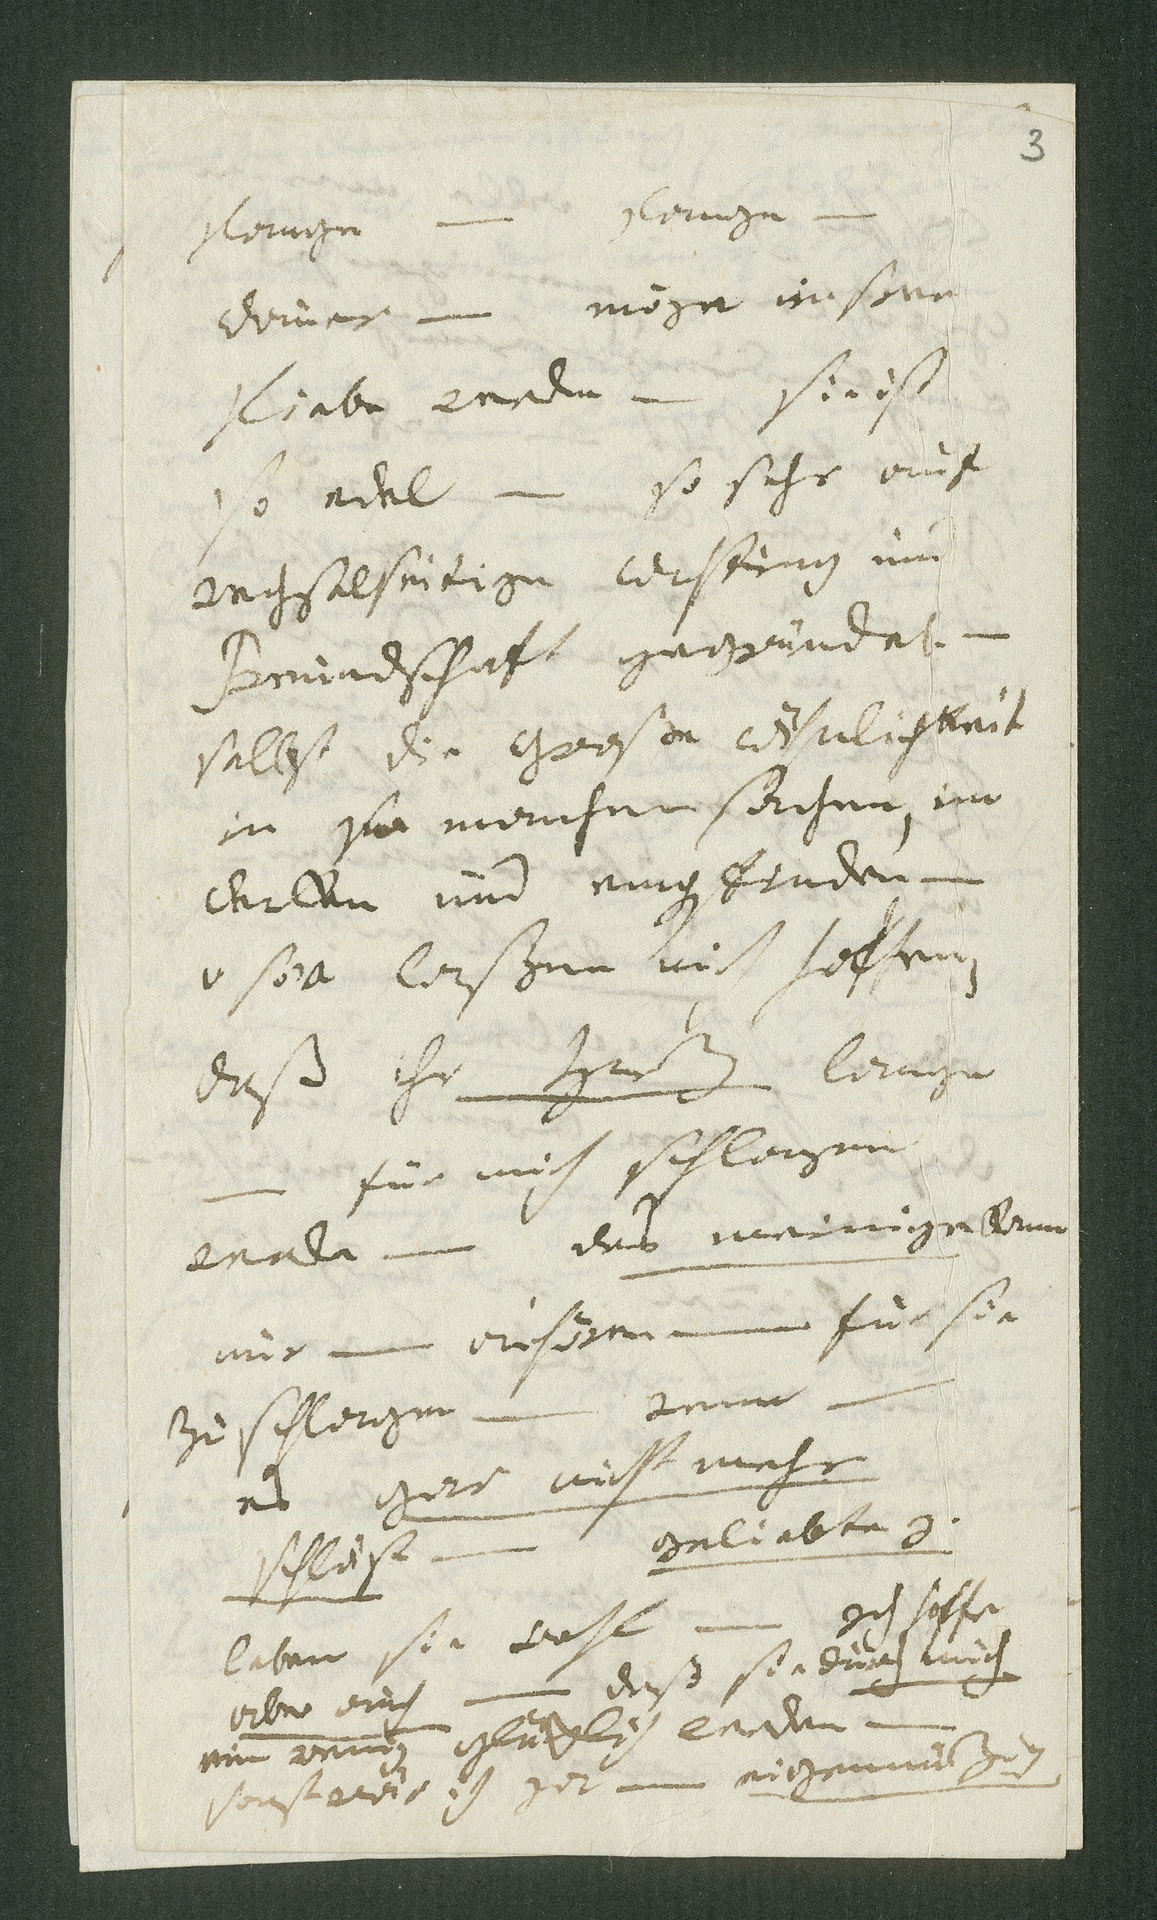 3
lange — lange —
dauer — möge unsrer
Liebe werden — sie ist
so edel — so sehr auf
wechselseitige achtung und
Freundschaft gegründet. —
selbst die große ähnlichkeit
in so manchen sachen, im
denken und empfinden —
o sie laßen mich hoffen,
daß ihr Herz lange
— für mich schlagen
werde — das meinige kann
nur — aufhören — für sie
zu schlagen — wenn —
es gar nicht mehr
schlägt — geliebte J.
leben sie wohl — Ich hoffe
aber auch — daß sie durch mich
ein wenig glüklich werden —
sonst wär ich ja — eigennüzig